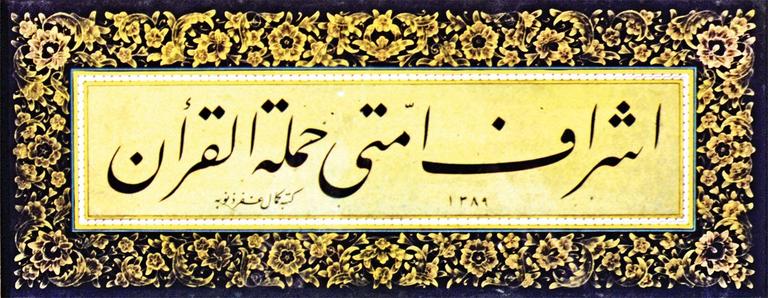 اشراف امّتی حملة القرأن
١٣٨٩
كتبه كمال غفر ذنوبه